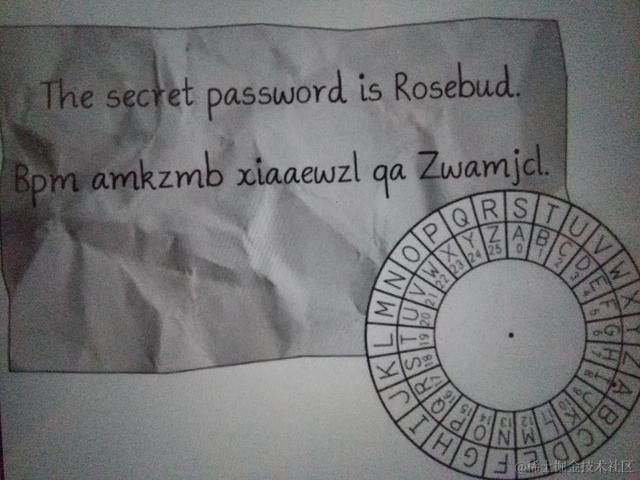 The secret password is Rosebud.
Bpm amkzmb xiaaewzl qa Zwamjcl.
S T U V W X Y Z A B C D E F G H I J K L M N O P Q R
A B C D E F G H I J K L M N O P Q R S T U V W X Y Z
0 1 2 3 4 5 6 7 8 9 10 11 12 13 14 15 16 17 18 19 20 21 22 23 24 25
@稀土掘金技术社区